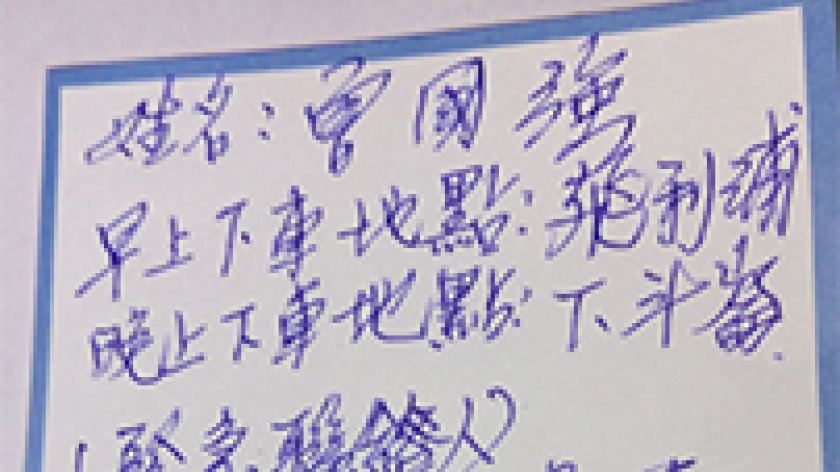 姓名：曾國強
早上下車地點：飛利浦
晚上下車地點：下斗崙
(緊急聯絡人)